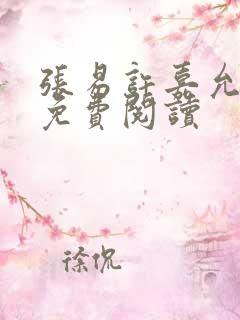 張易許嘉允
免費閱讀
徐侃